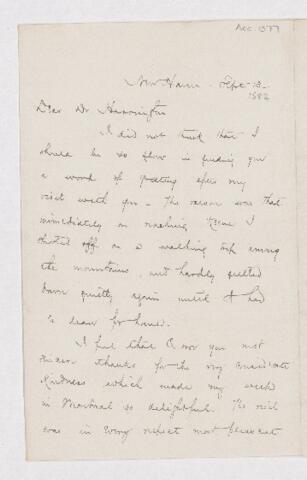 Acc. 1577
New Haven - Sept 13 -
1882
Dear Dr Harrington
I did not think that I
should be so slow in sending you
a word of greeting after my
visit with you - The reason was that
immediately on reaching Keene I
started off on a walking trip among
the mountains, and hardly settled
down quietly again until I had
to leave for home.
I feel that I owe you most
sincere thanks for the very considerate
kindness which made my week
in Montreal so delightful. The visit
was in every respect most pleasant